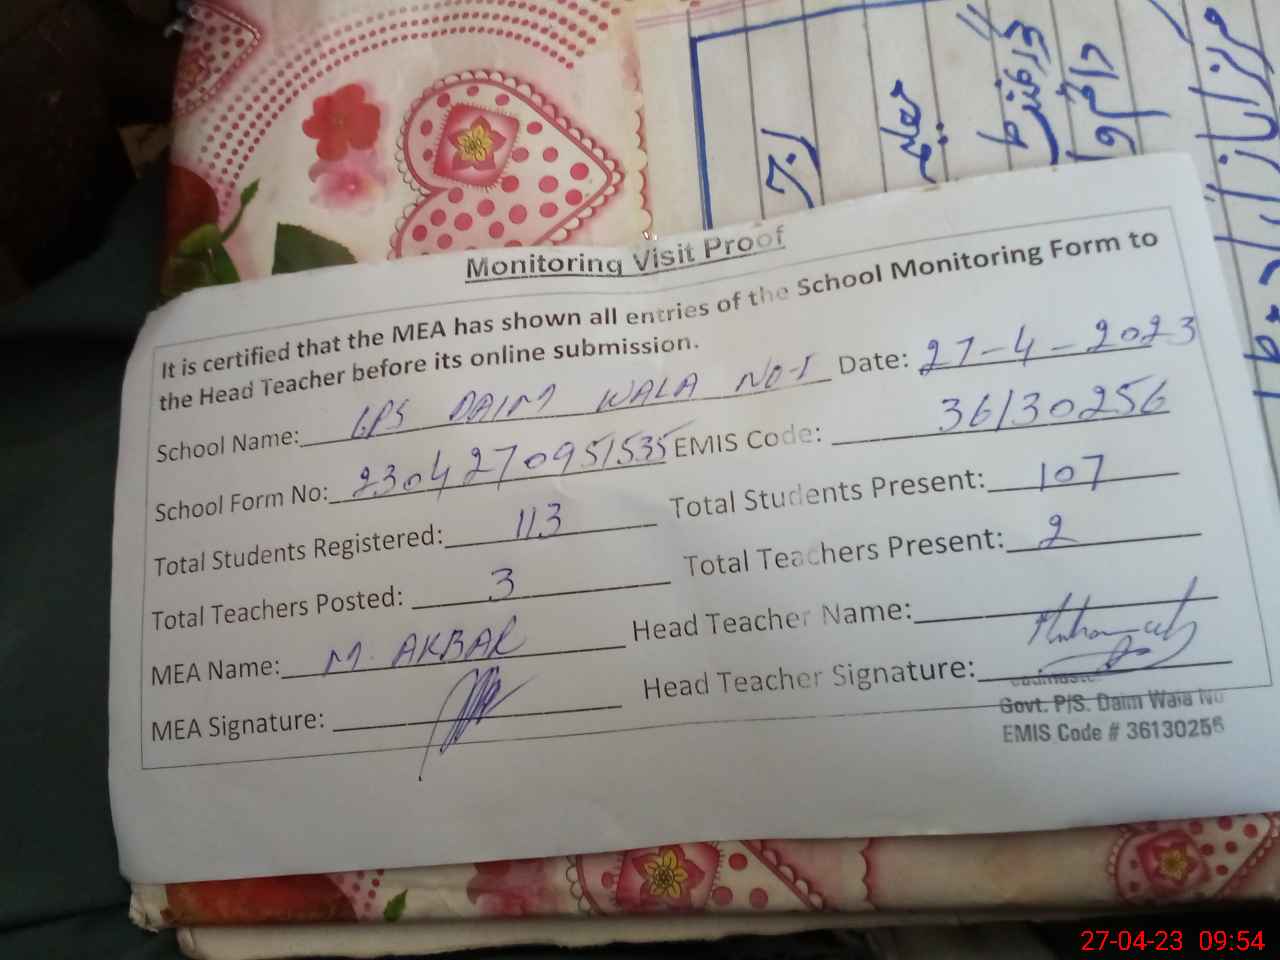 Monitoring Visit Proof
It is certified that the MEA has shown all entries of the School Monitoring Form to
the Head Teacher before its online submission.
School Name: GPS DAIM WALA NO-1 Date: 27-4-2023
School Form No: 2304270951535 EMIS Code: 36130256
Total Students Registered: 113 Total Students Present: 107
Total Teachers Posted: 3 Total Teachers Present: 2
MEA Name: M. AKBAR Head Teacher Name:
MEA Signature: Head Teacher Signature:
Govt. P/S. Daim Wala No
EMIS Code # 36130256
27-04-23 09:54